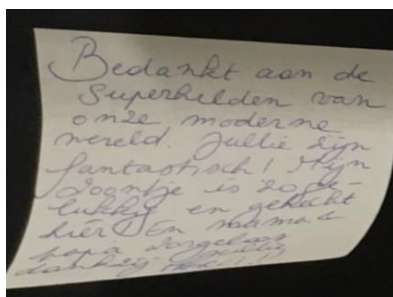 Bedankt aan de
Superhelden van
onze moderne
wereld. Jullie zijn
fantastisch! Mijn
zoontje is zo ge-
lukkig en gehecht
hier. En mama &
papa zorgeloos
dankzij jullie